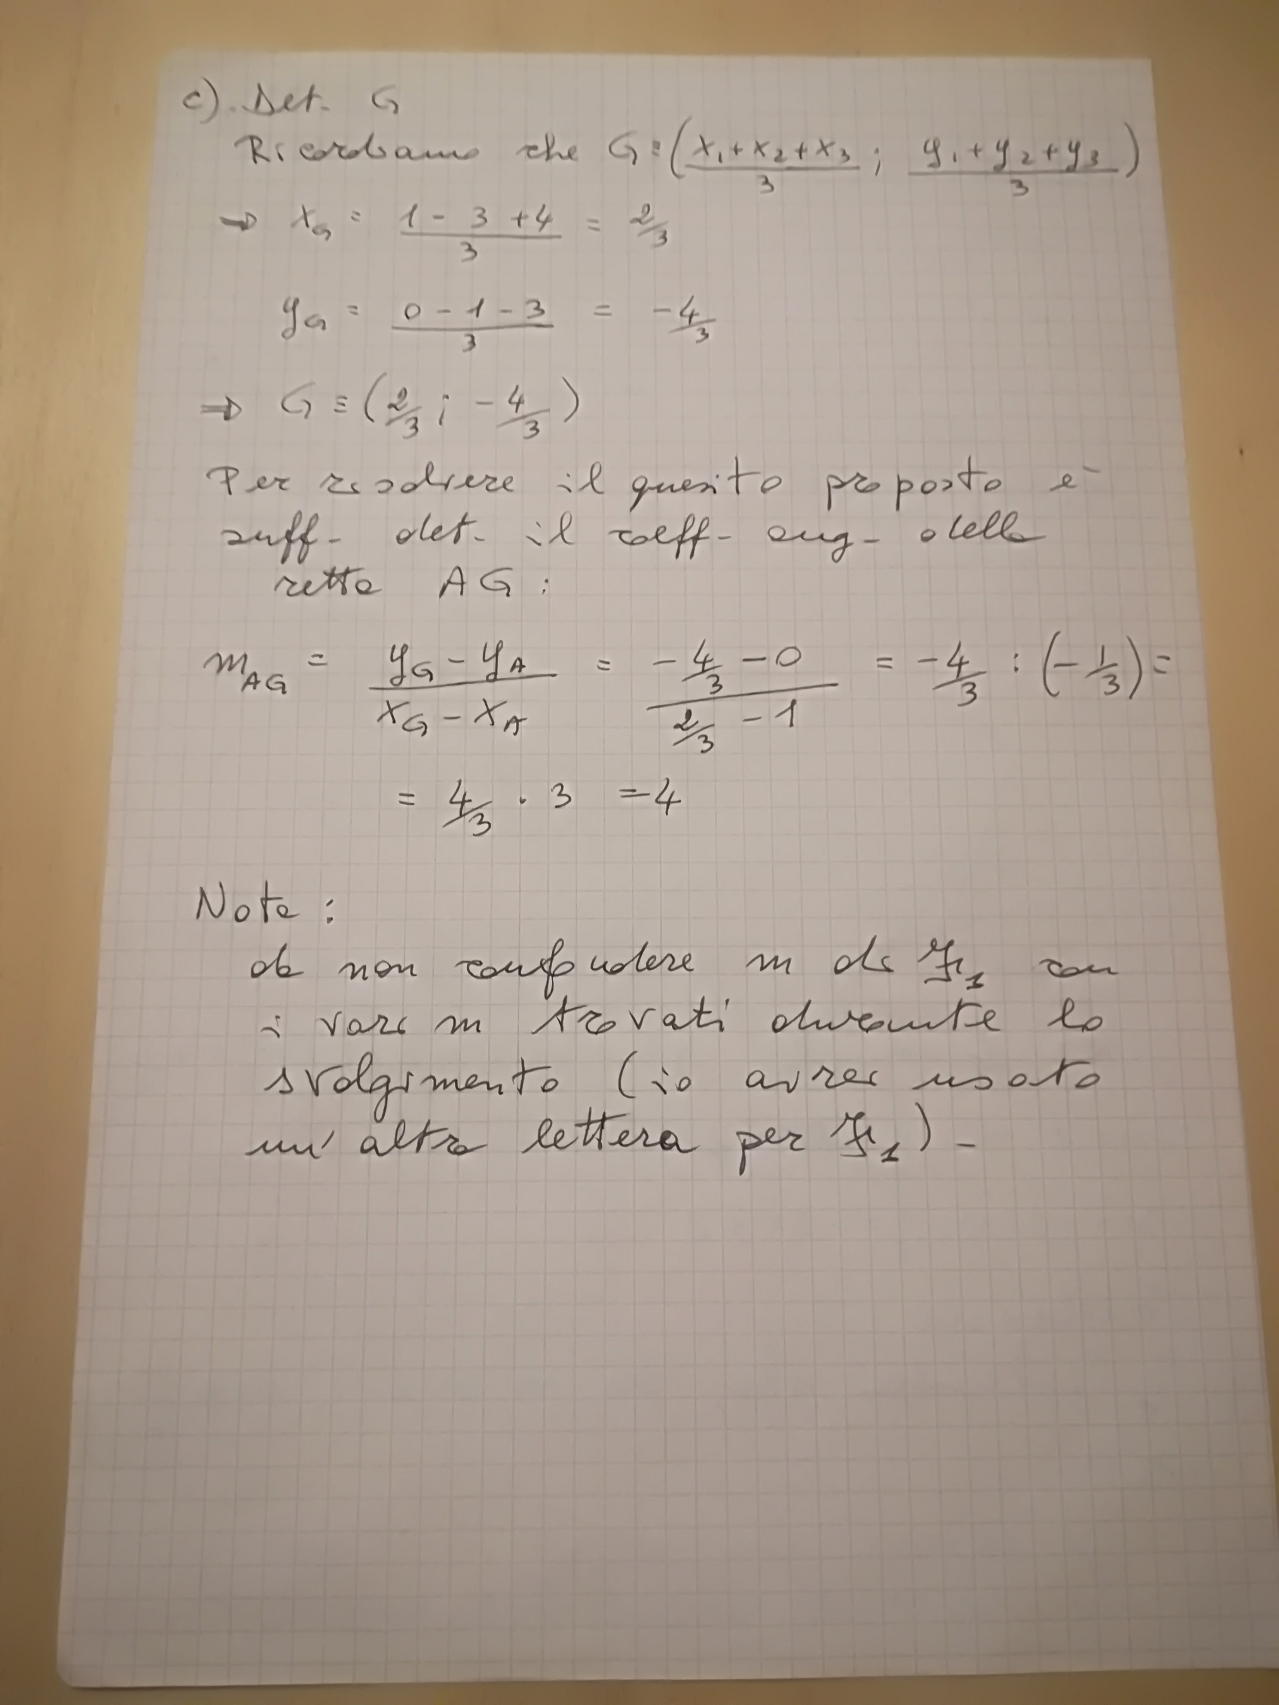 c). Det. G
Ricordiamo che G ≡ (x₁+x₂+x₃/3 ; y₁+y₂+y₃/3)
⇒ x_G = 1-3+4/3 = 2/3
y_G = 0-1-3/3 = -4/3
⇒ G ≡ (2/3 ; -4/3)
Per risolvere il quesito proposto è
suff. det. il coeff. ang. della
retta AG :
m_AG = y_G - y_A / x_G - x_A = -4/3 - 0 / 2/3 - 1 = -4/3 : (-1/3) =
= 4/3 · 3 = 4
Nota :
da non confondere m di ℱ₁ con
i vari m trovati durante lo
svolgimento (io avrei usato
un' altra lettera per ℱ₁) -